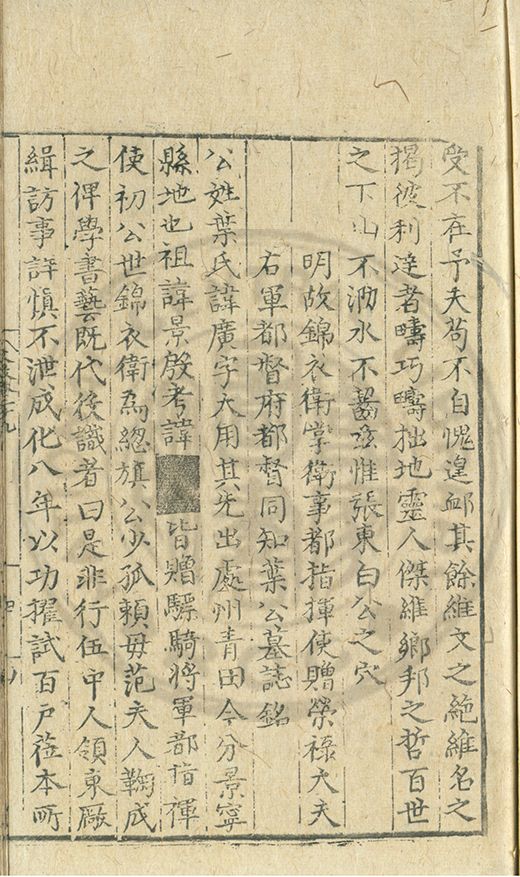 受不在予夫茍不自愧遑䘏其餘維文之絕維名之
揭彼利逹者疇巧疇拙地靈人傑維鄉邦之哲百世
之下山不泐水不齧玆惟張東白公之穴
明故錦衣衛掌衛事都指揮使贈榮祿大夫
右軍都督府都督同知葉公墓誌銘
公姓葉氏諱廣字大用其先出處州青田今分景寧
縣地也祖諱景殷考諱皆贈驃騎將軍都指揮
使初公世錦衣衛爲緫旗公少孤賴母范夫人鞠成
之俾學書藝旣代後識者曰是非行伍中人領東厰
緝訪事詳慎不泄成化八年以功擢試百戶莅本所